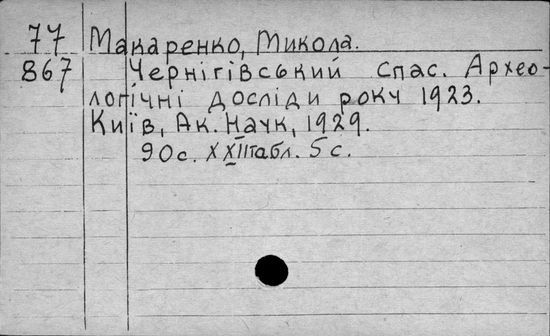 77 Макаренко, Микола.
867 Чернігівський спас. Архео-
логічні досліди року 1923.
Київ, Ак. Наук, 1929.
90 с. XXII табл. 5 с.